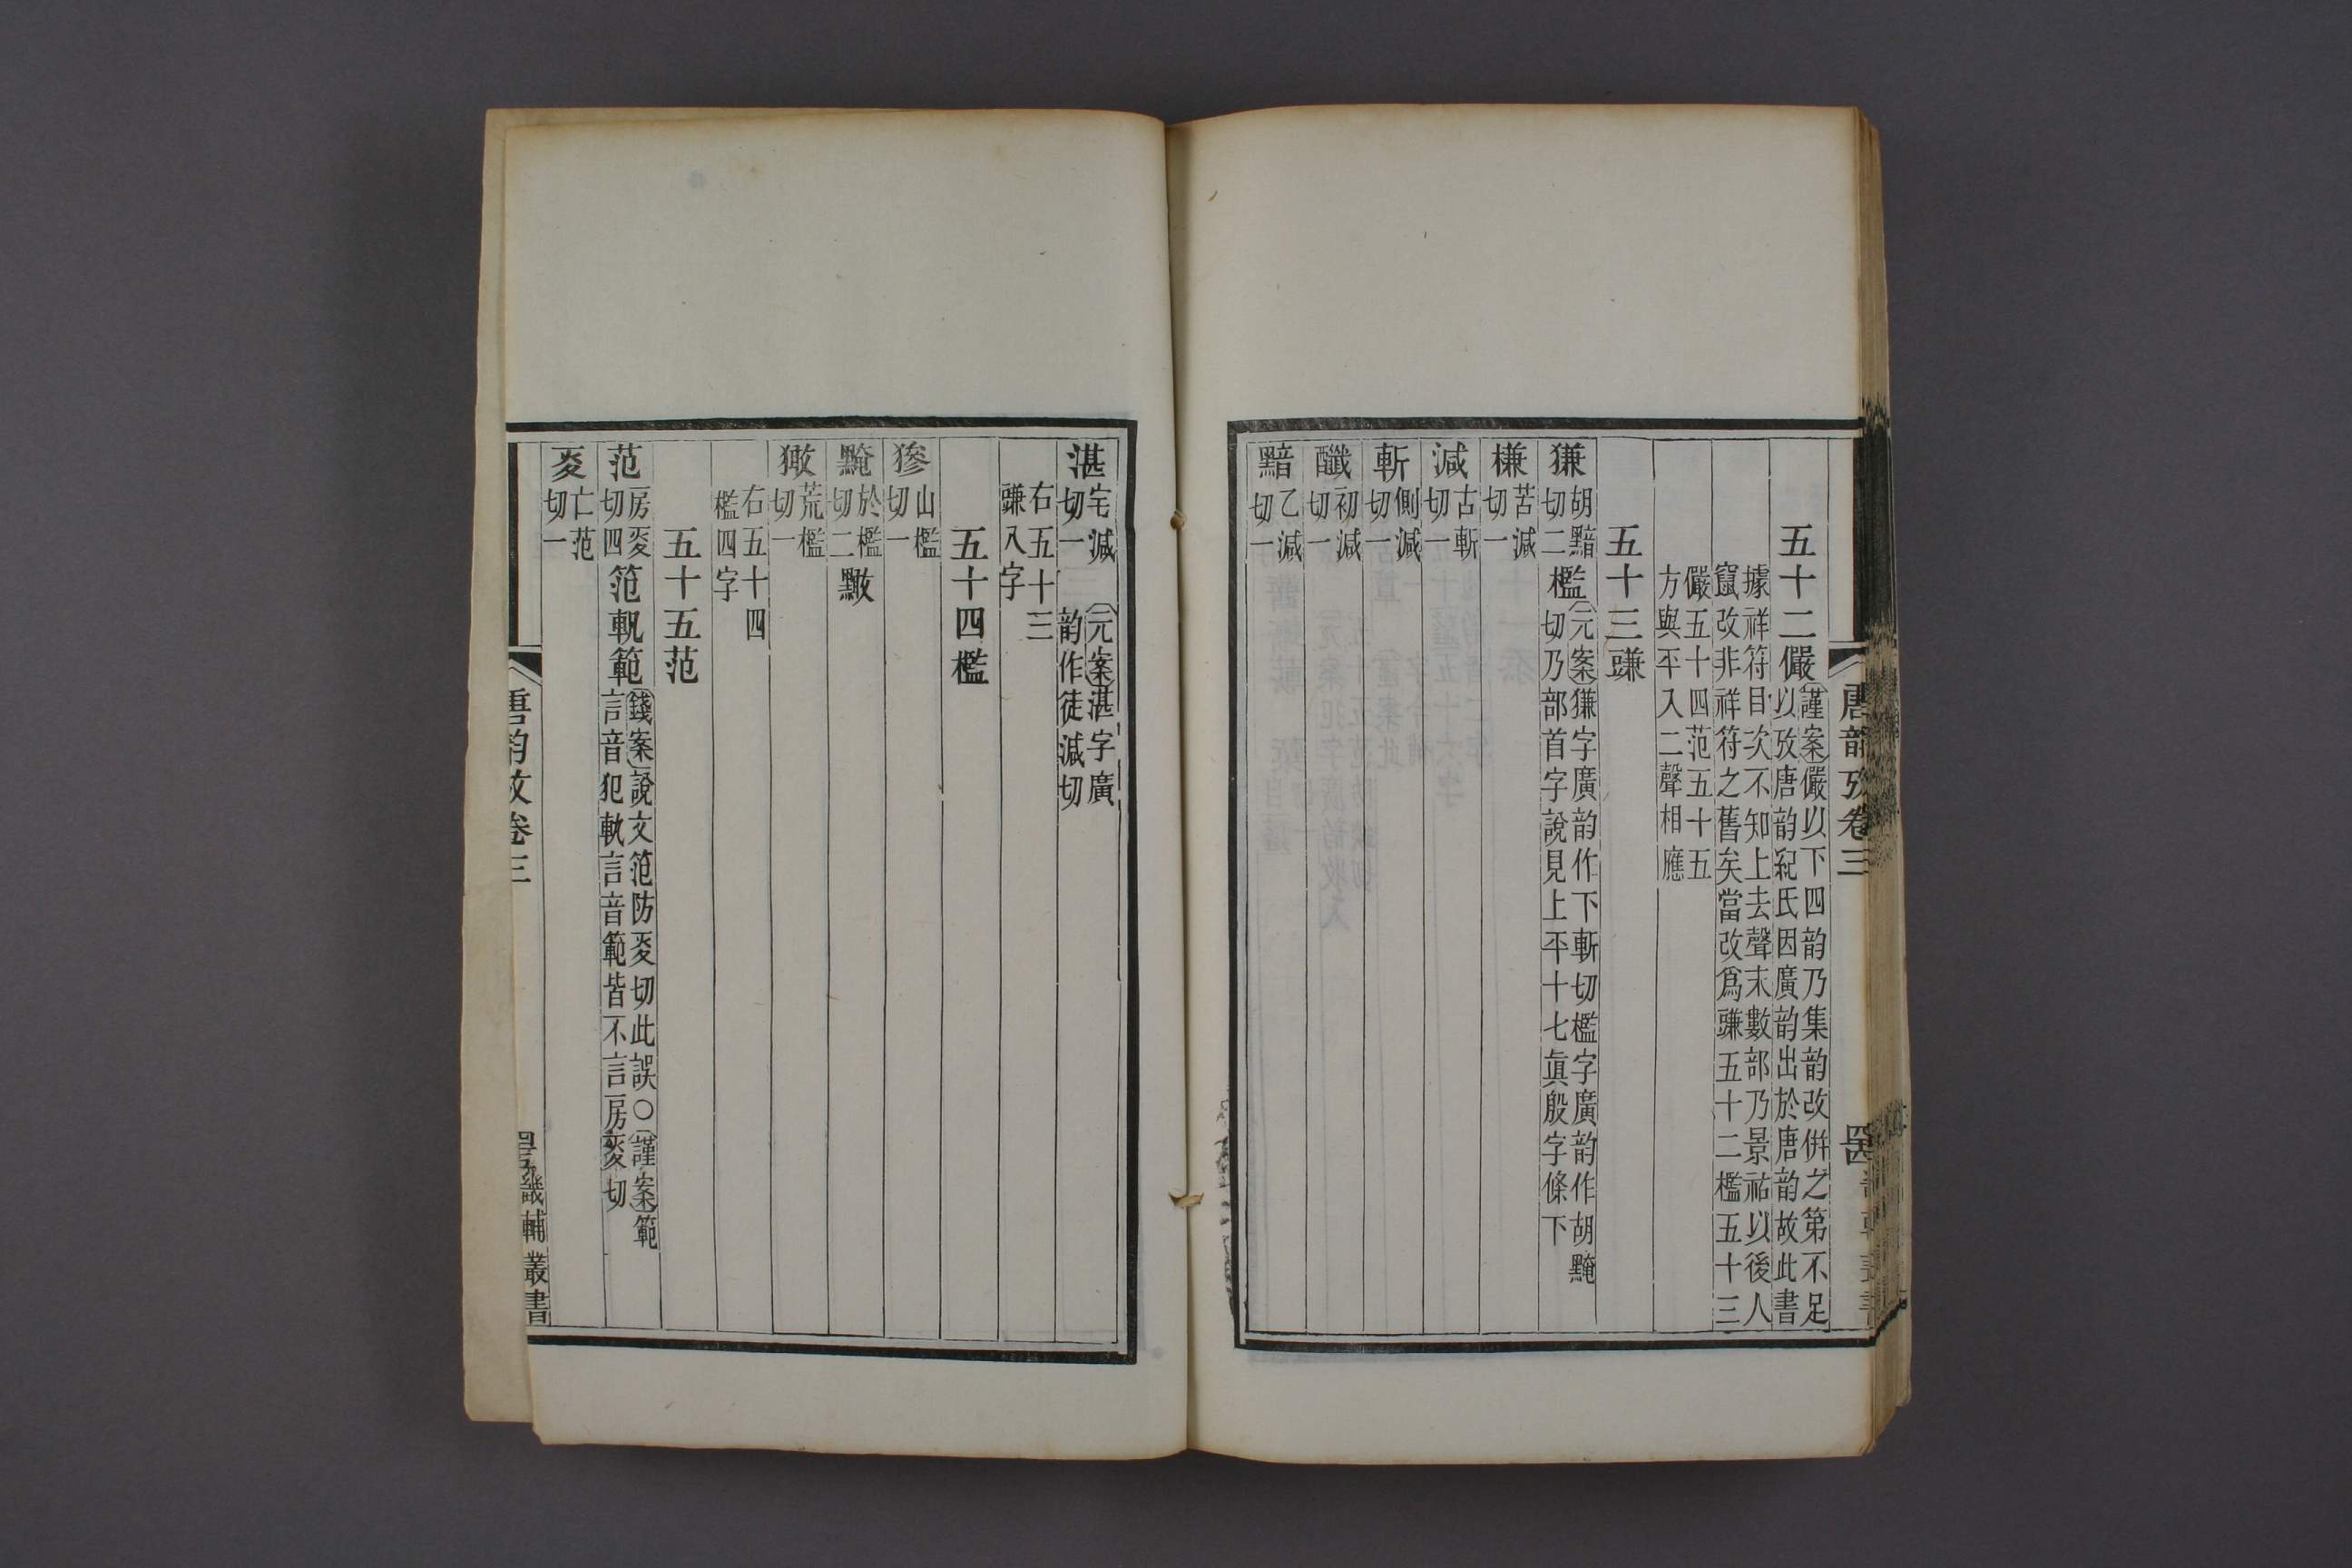 唐韵攷卷三
五十二儼 謹案儼以下四韵乃集韵改併之第不足
以攷唐韵紀氏因廣韵出於唐韵故此書
據祥符目次不知上去聲末數部乃景祐以後人
竄改非祥符之舊矣當改爲豏五十二檻五十三
儼五十四范五十五
方與平入二聲相應
五十三豏
㺌 胡黯切二 檻 元案㺌字廣韵作下斬切檻字廣韵作胡黤
切乃部首字說見上平十七眞殷字條下
槏 苦減切一
減 古斬切一
斬 側減切一
醶 初減切一
黯 乙減切一
湛 宅減切一 元案湛字廣
韵作徒減切
右五十三
豏八字
五十四檻
摻 山檻切一
黤 於檻切二 黭
㺖 荒檻切一
右五十四
檻四字
五十五范
范 房㚇切四 笵 軓 範 錢案說文笵防㚇切此誤○謹案範
言音犯軓言音範皆不言房㚇切
㚇 亡范切一
唐韵攷卷三
畿輔叢書